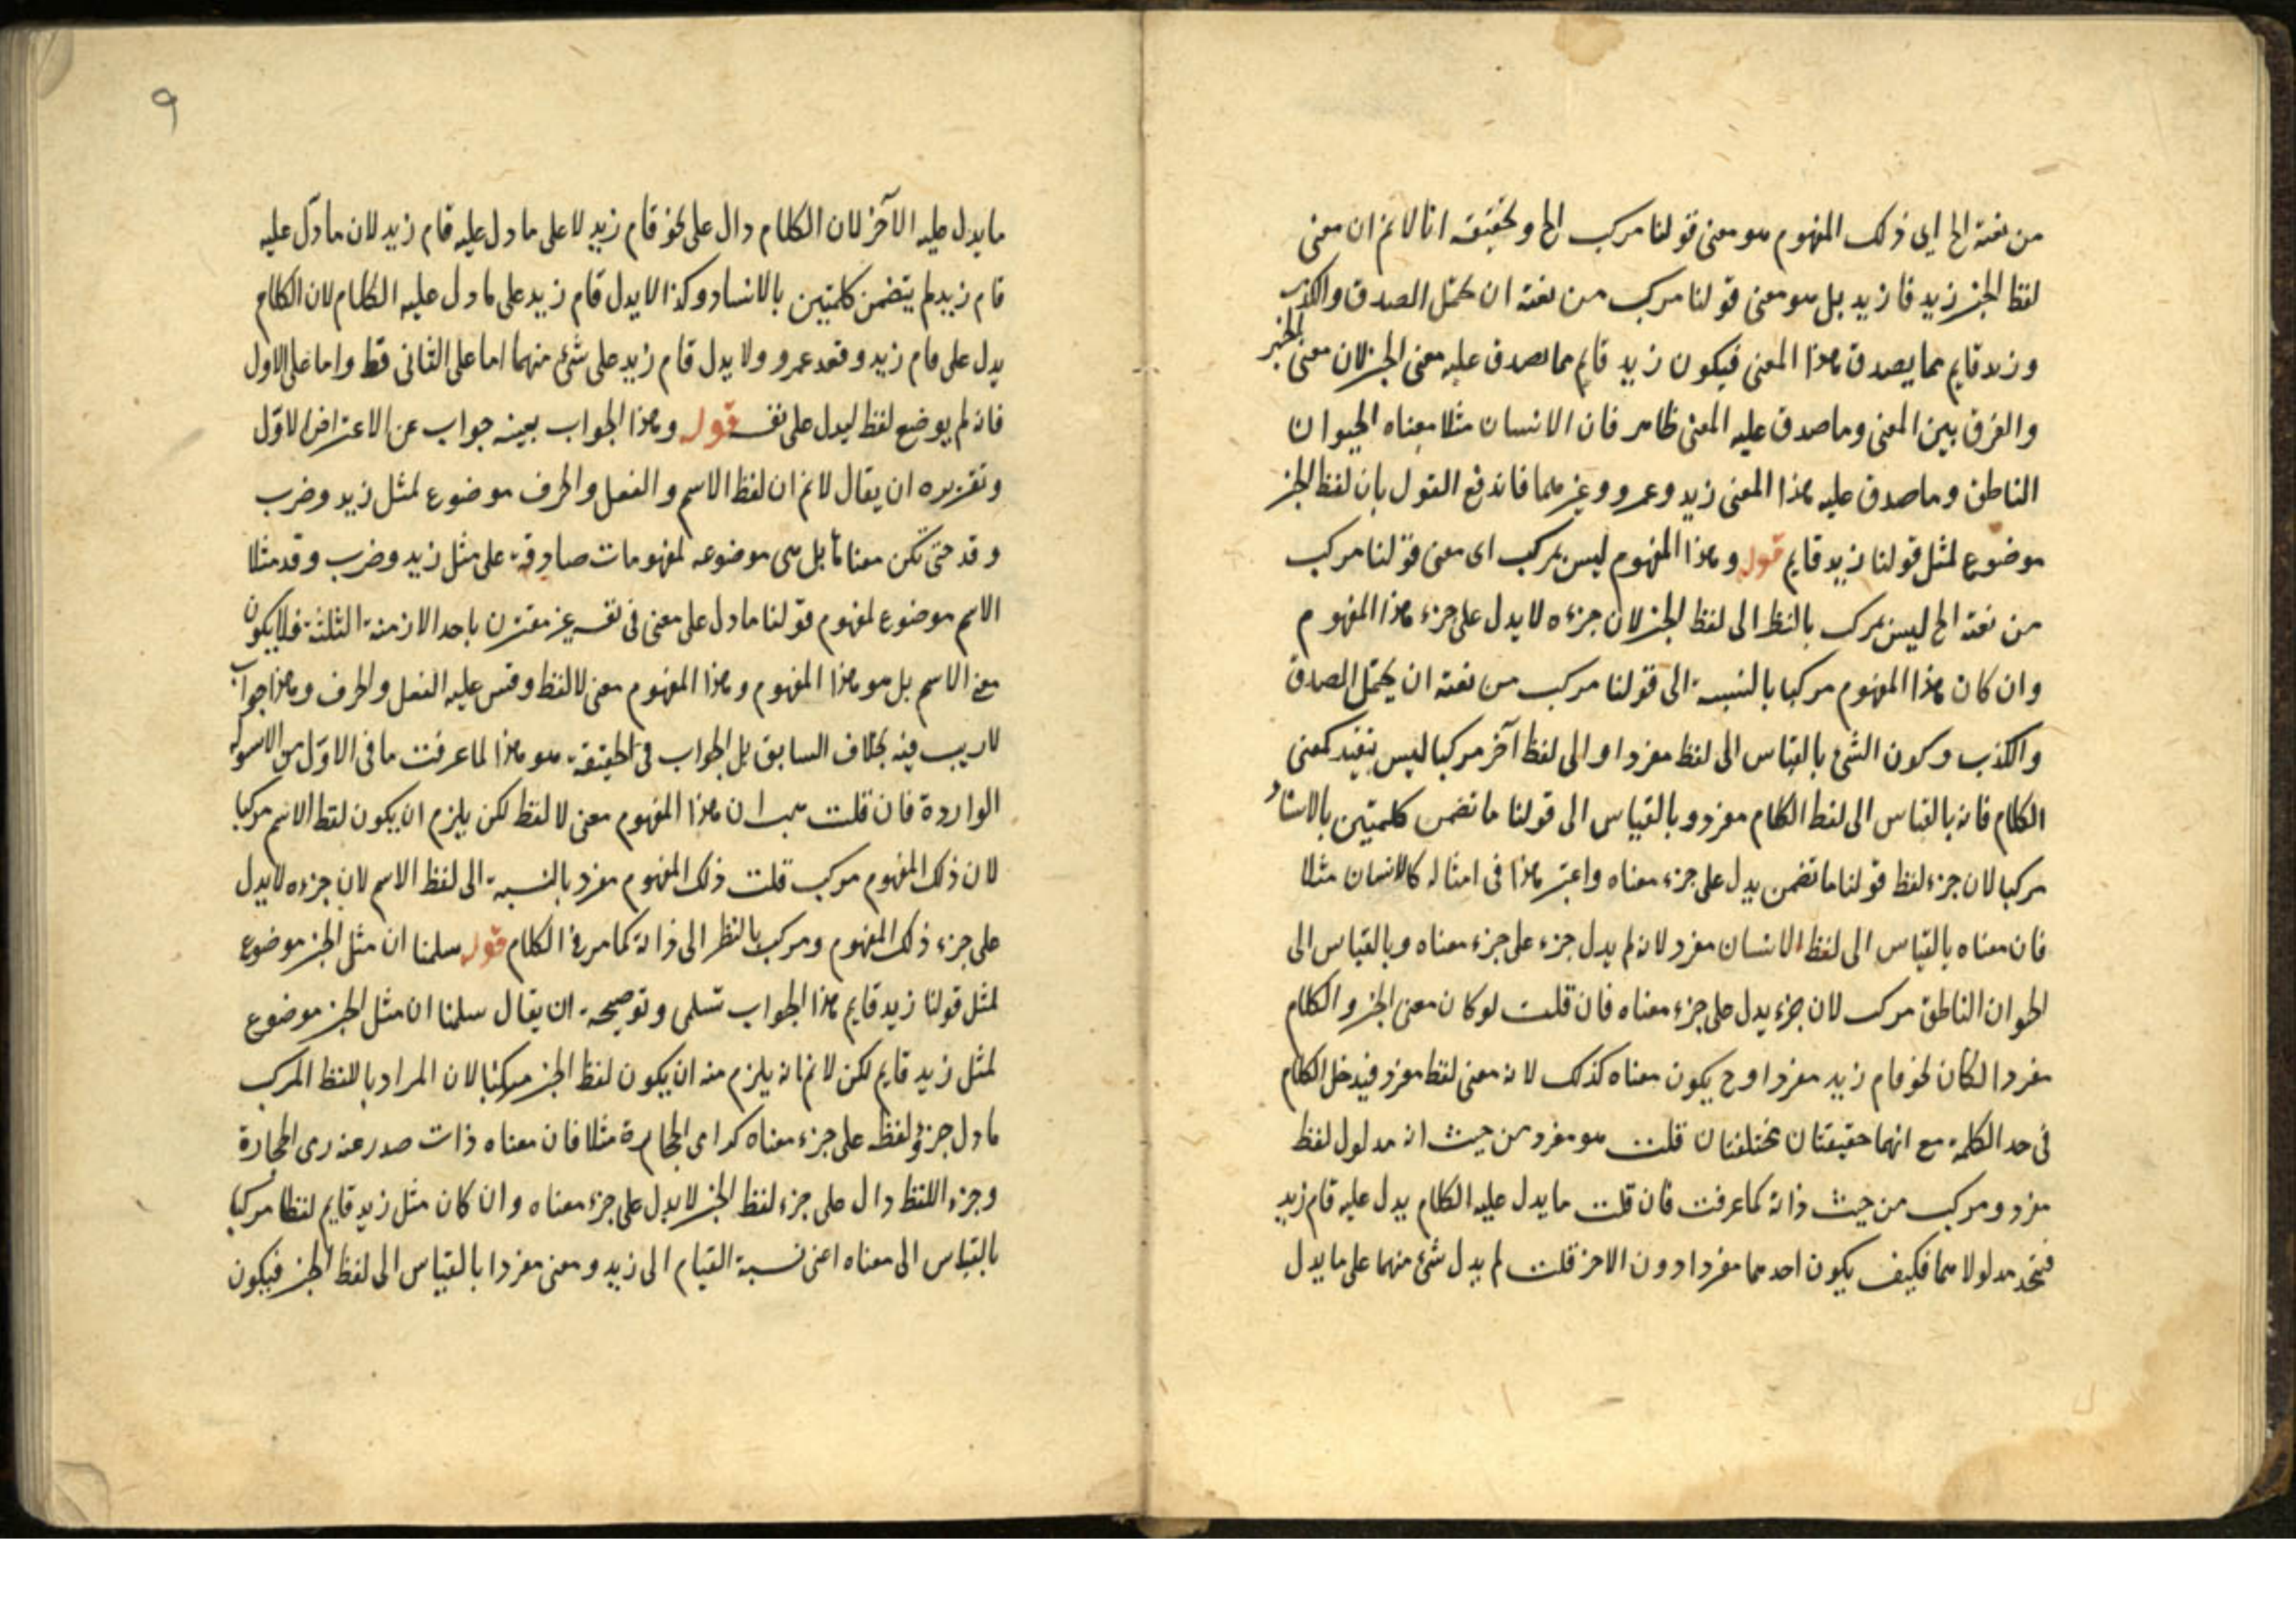 من نعته الخ اى ذلك المفهوم هو معنى قولنا مركب الخ وتحقيقه انا لانم ان معنى
لفظ الخبر زيد قا زيد بل هو معنى قولنا مركب من نعته ان يحتمل الصدق والكذب
وزيد قايم مما يصدق هذا المعنى فيكون زيد قايم مما صدق عليه معنى الخبر لان معنى الخبر
والفرق بين المعنى وما صدق عليه المعنى ظاهر فان الانسان مثلا معناه الحيوان
الناطق وما صدق عليه هذا المعنى زيد وعمرو وغيرهما فاندفع القول بان لفظ الخبر
موضوع لمثل قولنا زيد قايم قوله وهذا المفهوم ليس بمركب اى معنى قولنا مركب
من نعته الخ ليس بمركب بالنظر الى لفظ الخبر لان جزءه لا يدل على جزء هذا المفهوم
وان كان هذا المفهوم مركبا بالنسبة الى قولنا مركب من نعته ان يحتمل الصدق
والكذب وكون الشئ بالقياس الى لفظ مفردا والى لفظ آخر مركبا ليس ببعيد كمعنى
الكلام فانه بالقياس الى لفظ الكلام مفرد وبالقياس الى قولنا ما تضمن كلمتين بالاسناد
مركبا لان جزء لفظ قولنا ما تضمن يدل على جزء معناه واعتبر هذا فى امثاله كالانسان مثلا
فان معناه بالقياس الى لفظ الانسان مفرد لانه لم يدل جزء على جزء معناه وبالقياس الى
الحيوان الناطق مركب لان جزء يدل على جزء معناه فان قلت لو كان معنى الخبر والكلام
مفردا لكان نحو قام زيد مفردا وح يكون معناه كذلك لانه معنى لفظ مفرد فيدخل الكلام
فى حد الكلمة مع انهما حقيقتان مختلفتان قلت هو مفرد من حيث انه مدلول لفظ
مفرد ومركب من حيث ذاته كما عرفت فان قلت ما يدل عليه الكلام يدل عليه قام زيد
فيتحد مدلولاهما فكيف يكون احدهما مفردا دون الاخر قلت لم يدل شئ منهما على ما يدل
٩
ما يدل عليه الآخر لان الكلام دال على نحو قام زيد لا على ما دل عليه قام زيد لان ما دل عليه
قام زيد لم يتضمن كلمتين بالاسناد وكذا لا يدل قام زيد على ما دل عليه الكلام لان الكلام
يدل على قام زيد وقعد عمرو ولا يدل قام زيد على شئ منهما اما على الثانى فظ واما على الاول
فانه لم يوضع لفظ ليدل على نفسه قوله وهذا الجواب بعينه جواب عن الاعتراض الاول
وتقريره ان يقال لانم ان لفظ الاسم والفعل والحرف موضوع لمثل زيد وضرب
وقد حتى تكن معناها بل هى موضوعه لمفهومات صادقة على مثل زيد وضرب وقد مثلا
الاسم موضوع لمفهوم قولنا ما دل على معنى فى نفسه غير مقترن باحد الازمنة الثلثة فلا يكون
معنى الاسم بل هو هذا المفهوم وهذا المفهوم معنى لا لفظ وقس عليه الفعل والحرف وهذا جواب
لا ريب فيه بخلاف السابق بل الجواب فى الحقيقة هو هذا لما عرفت ما فى الاول من الاسوله
الواردة فان قلت هب ان هذا المفهوم معنى لا لفظ لكن يلزم ان يكون لفظ الاسم مركبا
لان ذلك المفهوم مركب قلت ذلك المفهوم مفرد بالنسبة الى لفظ الاسم لان جزءه لا يدل
على جزء ذلك المفهوم ومركب بالنظر الى ذاته كما مر فى الكلام قوله سلمنا ان مثل الخبر موضوع
لمثل قولنا زيد قايم هذا الجواب تسلمى وتوضيحه ان يقال سلمنا ان مثل الخبر موضوع
لمثل زيد قايم لكن لانم انه يلزم منه ان يكون لفظ الخبر مركبا لان المراد باللفظ المركب
ما دل جزؤ لفظه على جزء معناه كرامى الحجارة مثلا فان معناه ذات صدر عنه رمى الحجارة
وجزء اللفظ دال على جزء لفظ الخبر لا يدل على جزء معناه وان كان مثل زيد قايم لفظا مركبا
بالقياس الى معناه اعنى نسبة القيام الى زيد ومعنى مفردا بالقياس الى لفظ الخبر فيكون